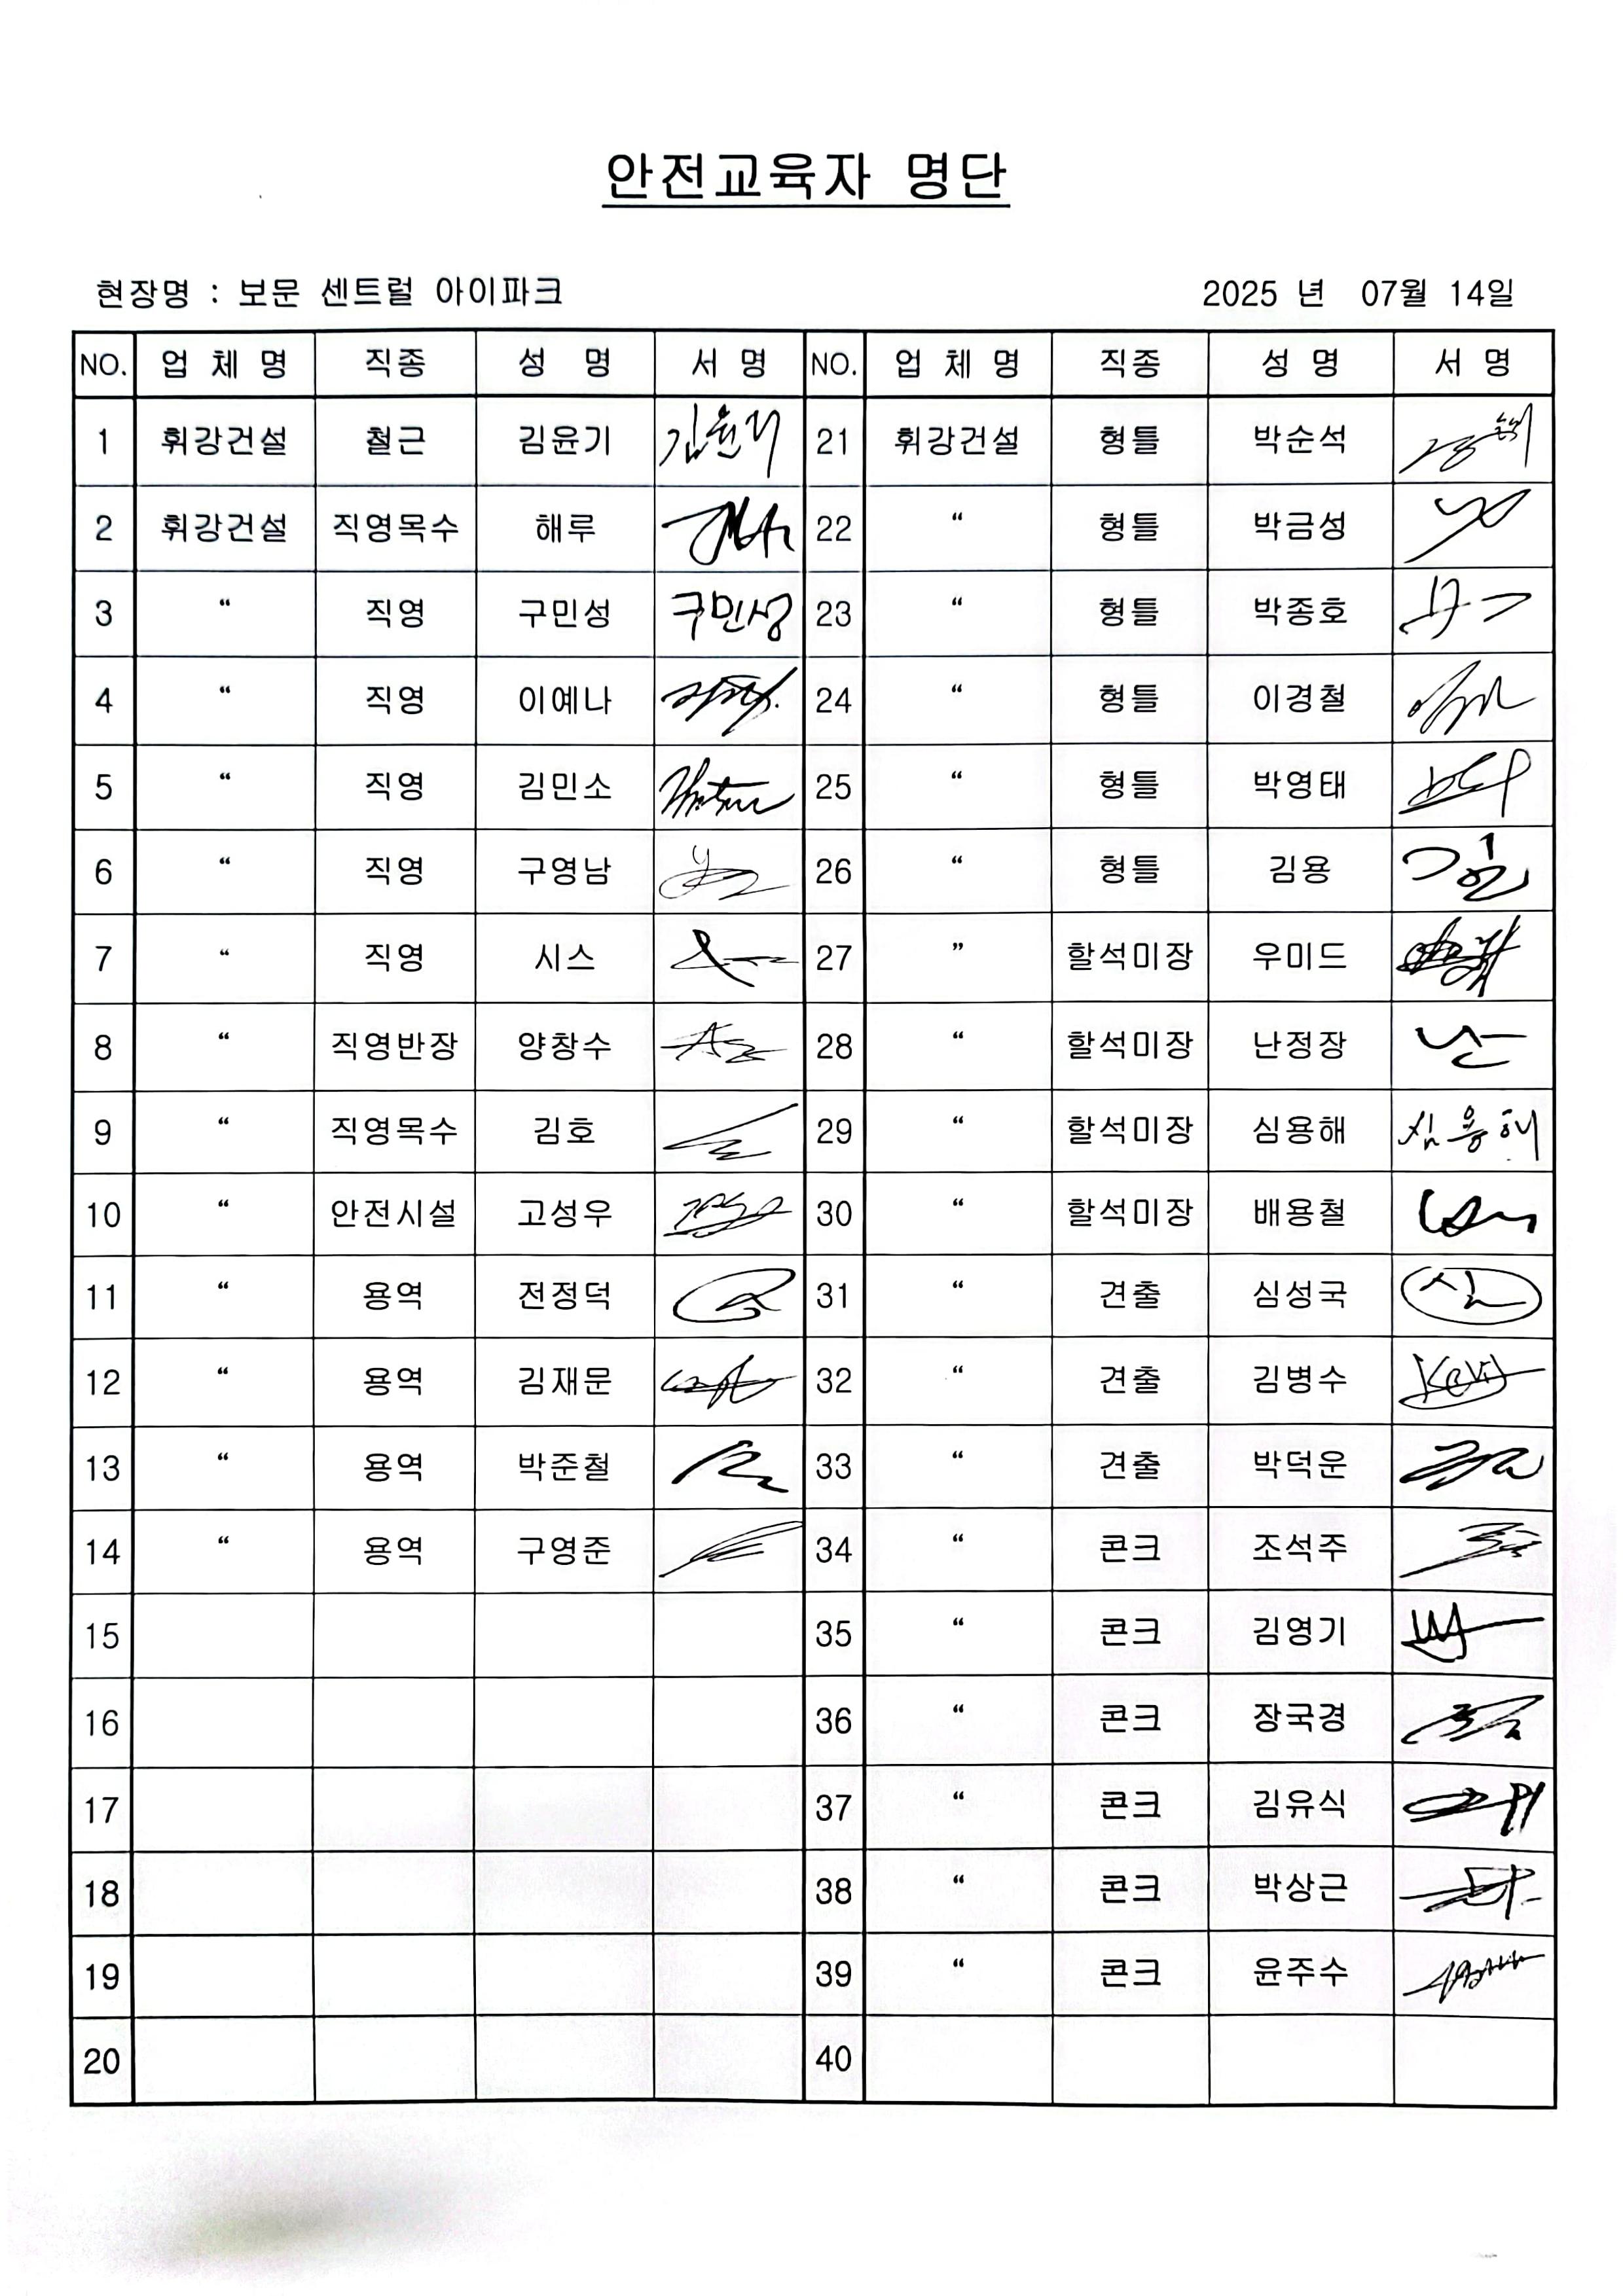 안전교육자 명단
현장명 : 보문 센트럴 아이파크 2025 년 07월 14일
NO. 업 체 명 직종 성 명 서 명 NO. 업 체 명 직종 성 명 서 명
1 휘강건설 철근 김윤기 김윤기 21 휘강건설 형틀 박순석
2 휘강건설 직영목수 해루 22 “ 형틀 박금성
3 “ 직영 구민성 구민성 23 “ 형틀 박종호
4 “ 직영 이예나 24 “ 형틀 이경철
5 “ 직영 김민소 25 “ 형틀 박영태
6 “ 직영 구영남 26 “ 형틀 김용
7 “ 직영 시스 27 ” 할석미장 우미드
8 “ 직영반장 양창수 28 “ 할석미장 난정장
9 “ 직영목수 김호 29 “ 할석미장 심용해 심용해
10 “ 안전시설 고성우 30 “ 할석미장 배용철
11 “ 용역 전정덕 31 “ 견출 심성국 심
12 “ 용역 김재문 32 “ 견출 김병수
13 “ 용역 박준철 33 “ 견출 박덕운
14 “ 용역 구영준 34 “ 콘크 조석주
15 35 “ 콘크 김영기
16 36 “ 콘크 장국경
17 37 “ 콘크 김유식
18 38 “ 콘크 박상근
19 39 “ 콘크 윤주수
20 40